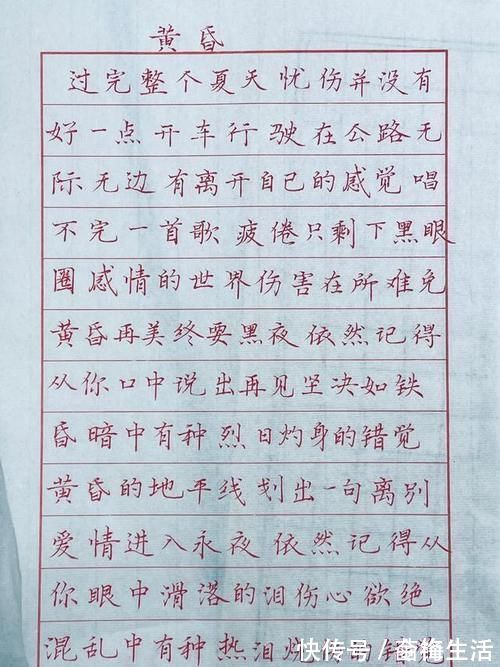 黄昏
过完整个夏天忧伤并没有
好一点开车行驶在公路无
际无边有离开自己的感觉唱
不完一首歌疲倦只剩下黑眼
圈感情的世界伤害在所难免
黄昏再美终要黑夜依然记得
从你口中说出再见坚决如铁
昏暗中有种烈日灼身的错觉
黄昏的地平线划出一句离别
爱情进入永夜依然记得从
你眼中滑落的泪伤心欲绝
混乱中有种热泪
快传号/菇梅生活